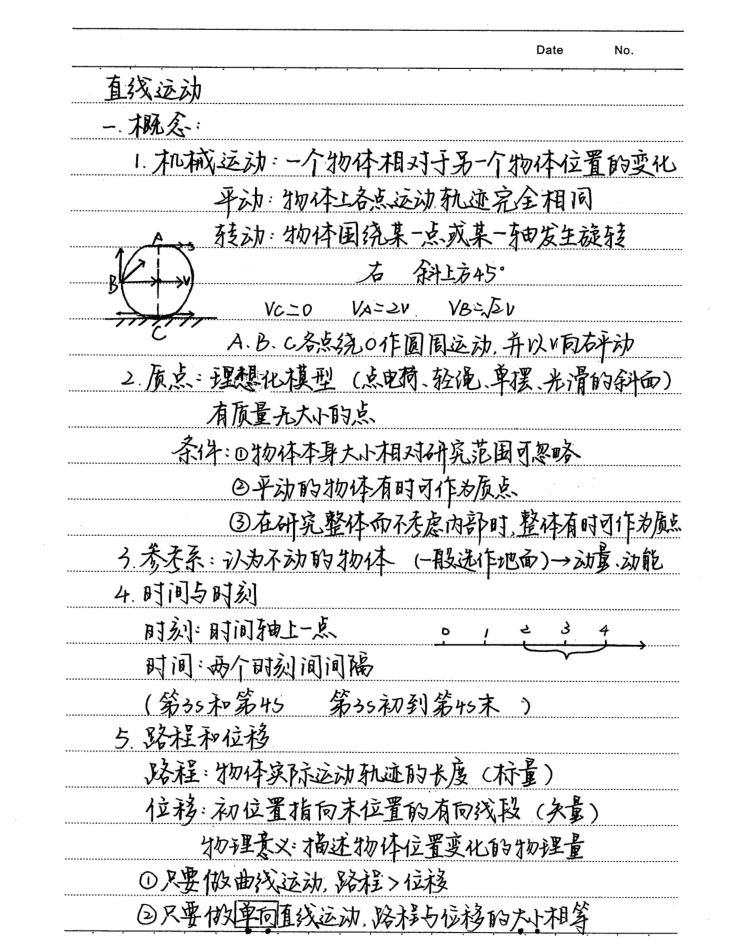 Date No.
直线运动
一.概念：
1. 机械运动：一个物体相对于另一个物体位置的变化
平动：物体上各点运动轨迹完全相同
转动：物体围绕某一点或某一轴发生旋转
A
B
V
C
右 斜上方45°
Vc=0 VA=2V VB=√2V
A.B.C各点绕O作圆周运动,并以V向右平动
2.质点：理想化模型（点电荷、轻绳、单摆、光滑的斜面）
有质量无大小的点
条件：①物体本身大小相对研究范围可忽略
②平动的物体有时可作为质点
③在研究整体而不考虑内部时,整体有时可作为质点
3.参考系：认为不动的物体（一般选作地面）→动量、动能
4.时间与时刻
时刻：时间轴上一点
0 1 2 3 4
时间：两个时刻间间隔
（第3s和第4s 第3s初到第4s末）
5.路程和位移
路程：物体实际运动轨迹的长度（标量）
位移：初位置指向末位置的有向线段（矢量）
物理意义：描述物体位置变化的物理量
①只要做曲线运动,路程>位移
②只要做单向直线运动.路程与位移的大小相等